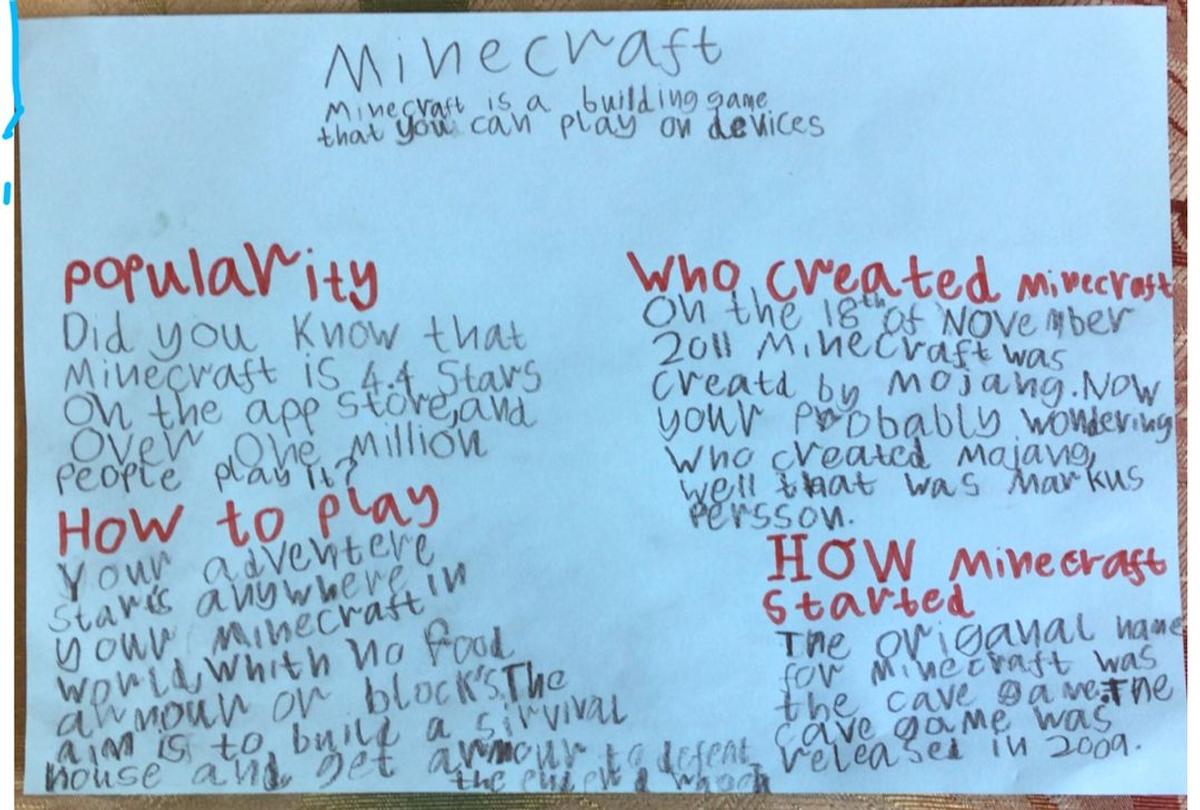 Minecraft
Minecraft is a building game
that you can play on devices
popularity
Did you know that
Minecraft is 4.4 Stars
on the app store, and
over one million
people play it?
How to play
Your adventere
starts anywhere in
your minecraft
world, whith no food
armour or block's. The
aim is to build a sirvival
house and get armour to defeat
the
Who created minecraft
On the 18th of November
2011 Minecraft was
creatd by mojang. Now
your probably wondering
who created mojang,
well that was Markus
Persson.
HOW Minecraft
started
The origanal name
for minecraft was
the cave game. The
cave game was
released in 2009.